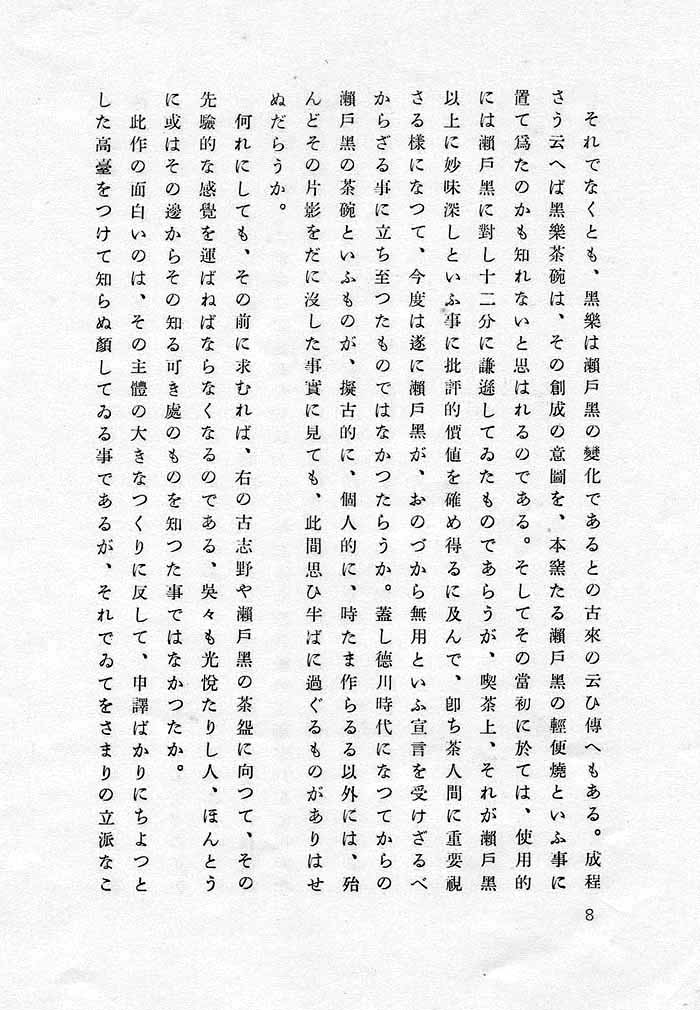 それでなくとも、黑樂は瀨戶黑の變化であるとの古來の云ひ傳へもある。成程
さう云へば黑樂茶碗は、その創成の意圖を、本窯たる瀨戶黑の輕便燒といふ事に
置て爲たのかも知れないと思はれるのである。そしてその當初に於ては、使用的
には瀨戶黑に對し十二分に謙遜してゐたものであらうが、喫茶上、それが瀨戶黑
以上に妙味深しといふ事に批評的價値を確め得るに及んで、卽ち茶人間に重要視
さる樣になつて、今度は遂に瀨戶黑が、おのづから無用といふ宣言を受けざるべ
からざる事に立ち至つたものではなかつたらうか。蓋し德川時代になつてからの
瀨戶黑の茶碗といふものが、擬古的に、個人的に、時たま作らるる以外には、殆
んどその片影をだに沒した事實に見ても、此間思ひ半ばに過ぐるものがありはせ
ぬだらうか。
何れにしても、その前に求むれば、右の古志野や瀨戶黑の茶盌に向つて、その
先驗的な感覺を運ばねばならなくなるのである、吳々も光悅たりし人、ほんとう
に或はその邊からその知る可き處のものを知つた事ではなかつたか。
此作の面白いのは、その主體の大きなつくりに反して、申譯ばかりにちよつと
した高臺をつけて知らぬ顏してゐる事であるが、それでゐてをさまりの立派なこ
8